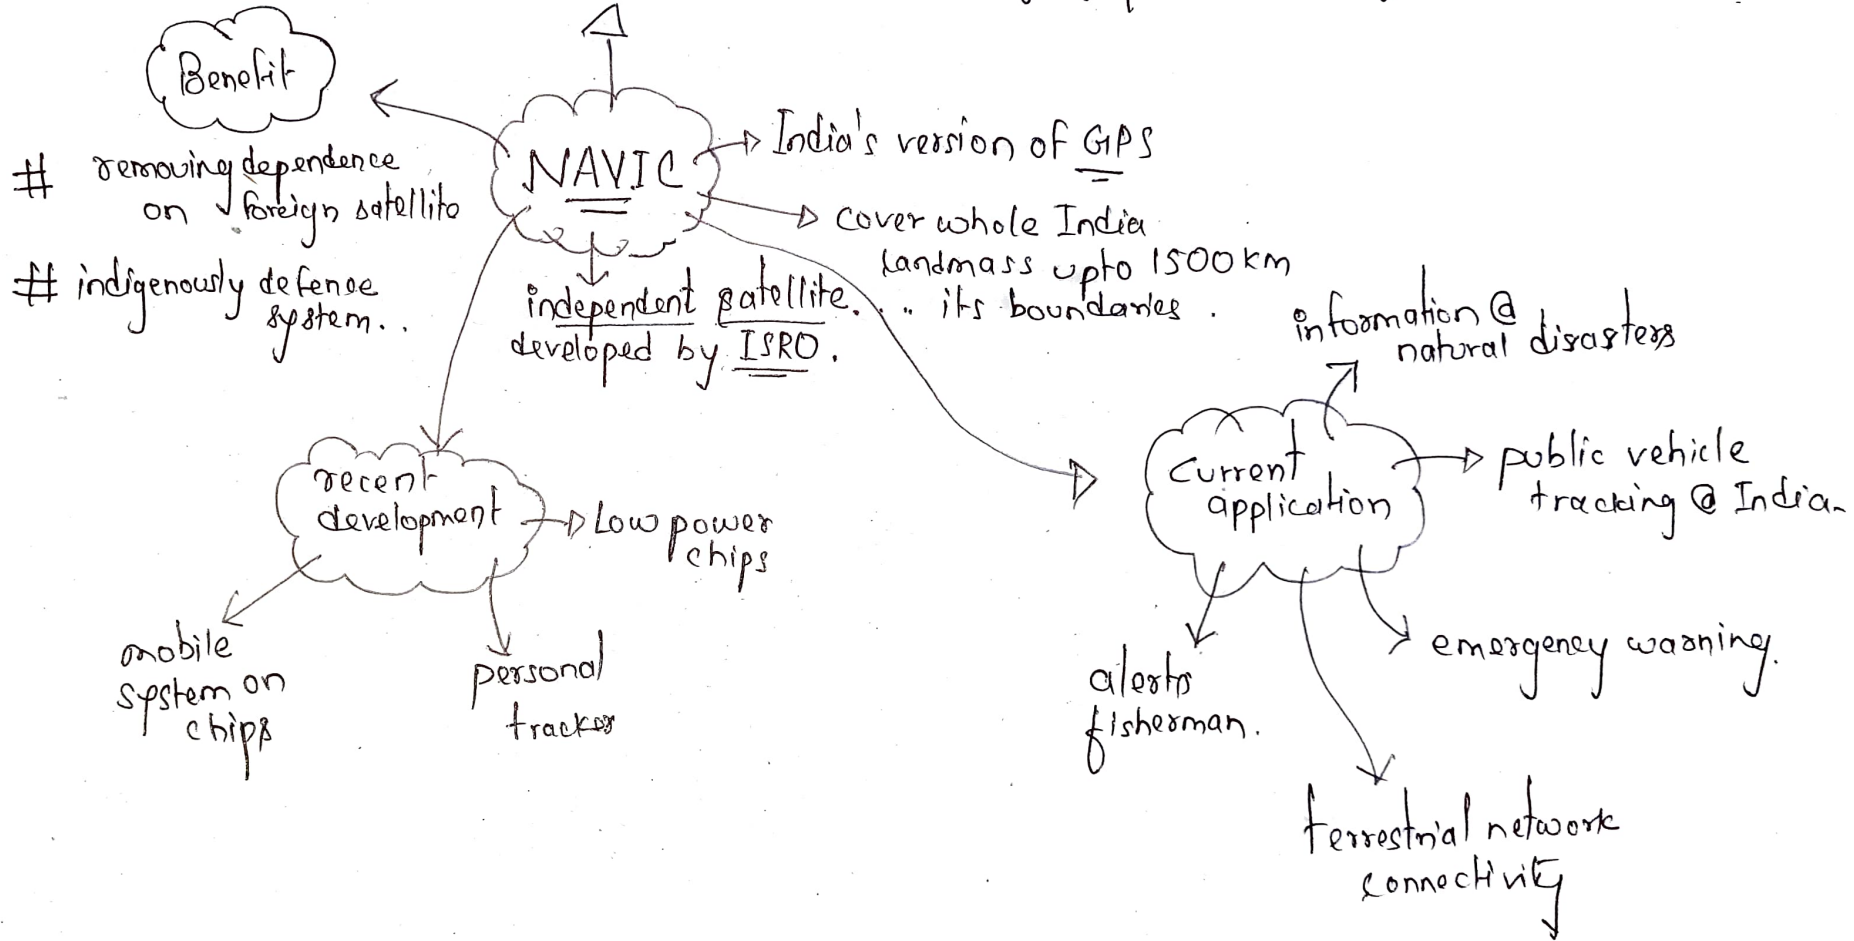 Benefit
# removing dependence
on foreign satellite
# indigenously defense
system..
NAVIC
India's version of GPS
cover whole India
landmass upto 1500km
.. its boundaries.
independent satellite.
developed by ISRO.
recent
development
Low power
chips
mobile
system on
chips
personal
tracker
current
application
information @
natural disasters
public vehicle
tracking @ India.
emergency warning.
alerts
fisherman.
terrestrial network
connectivity